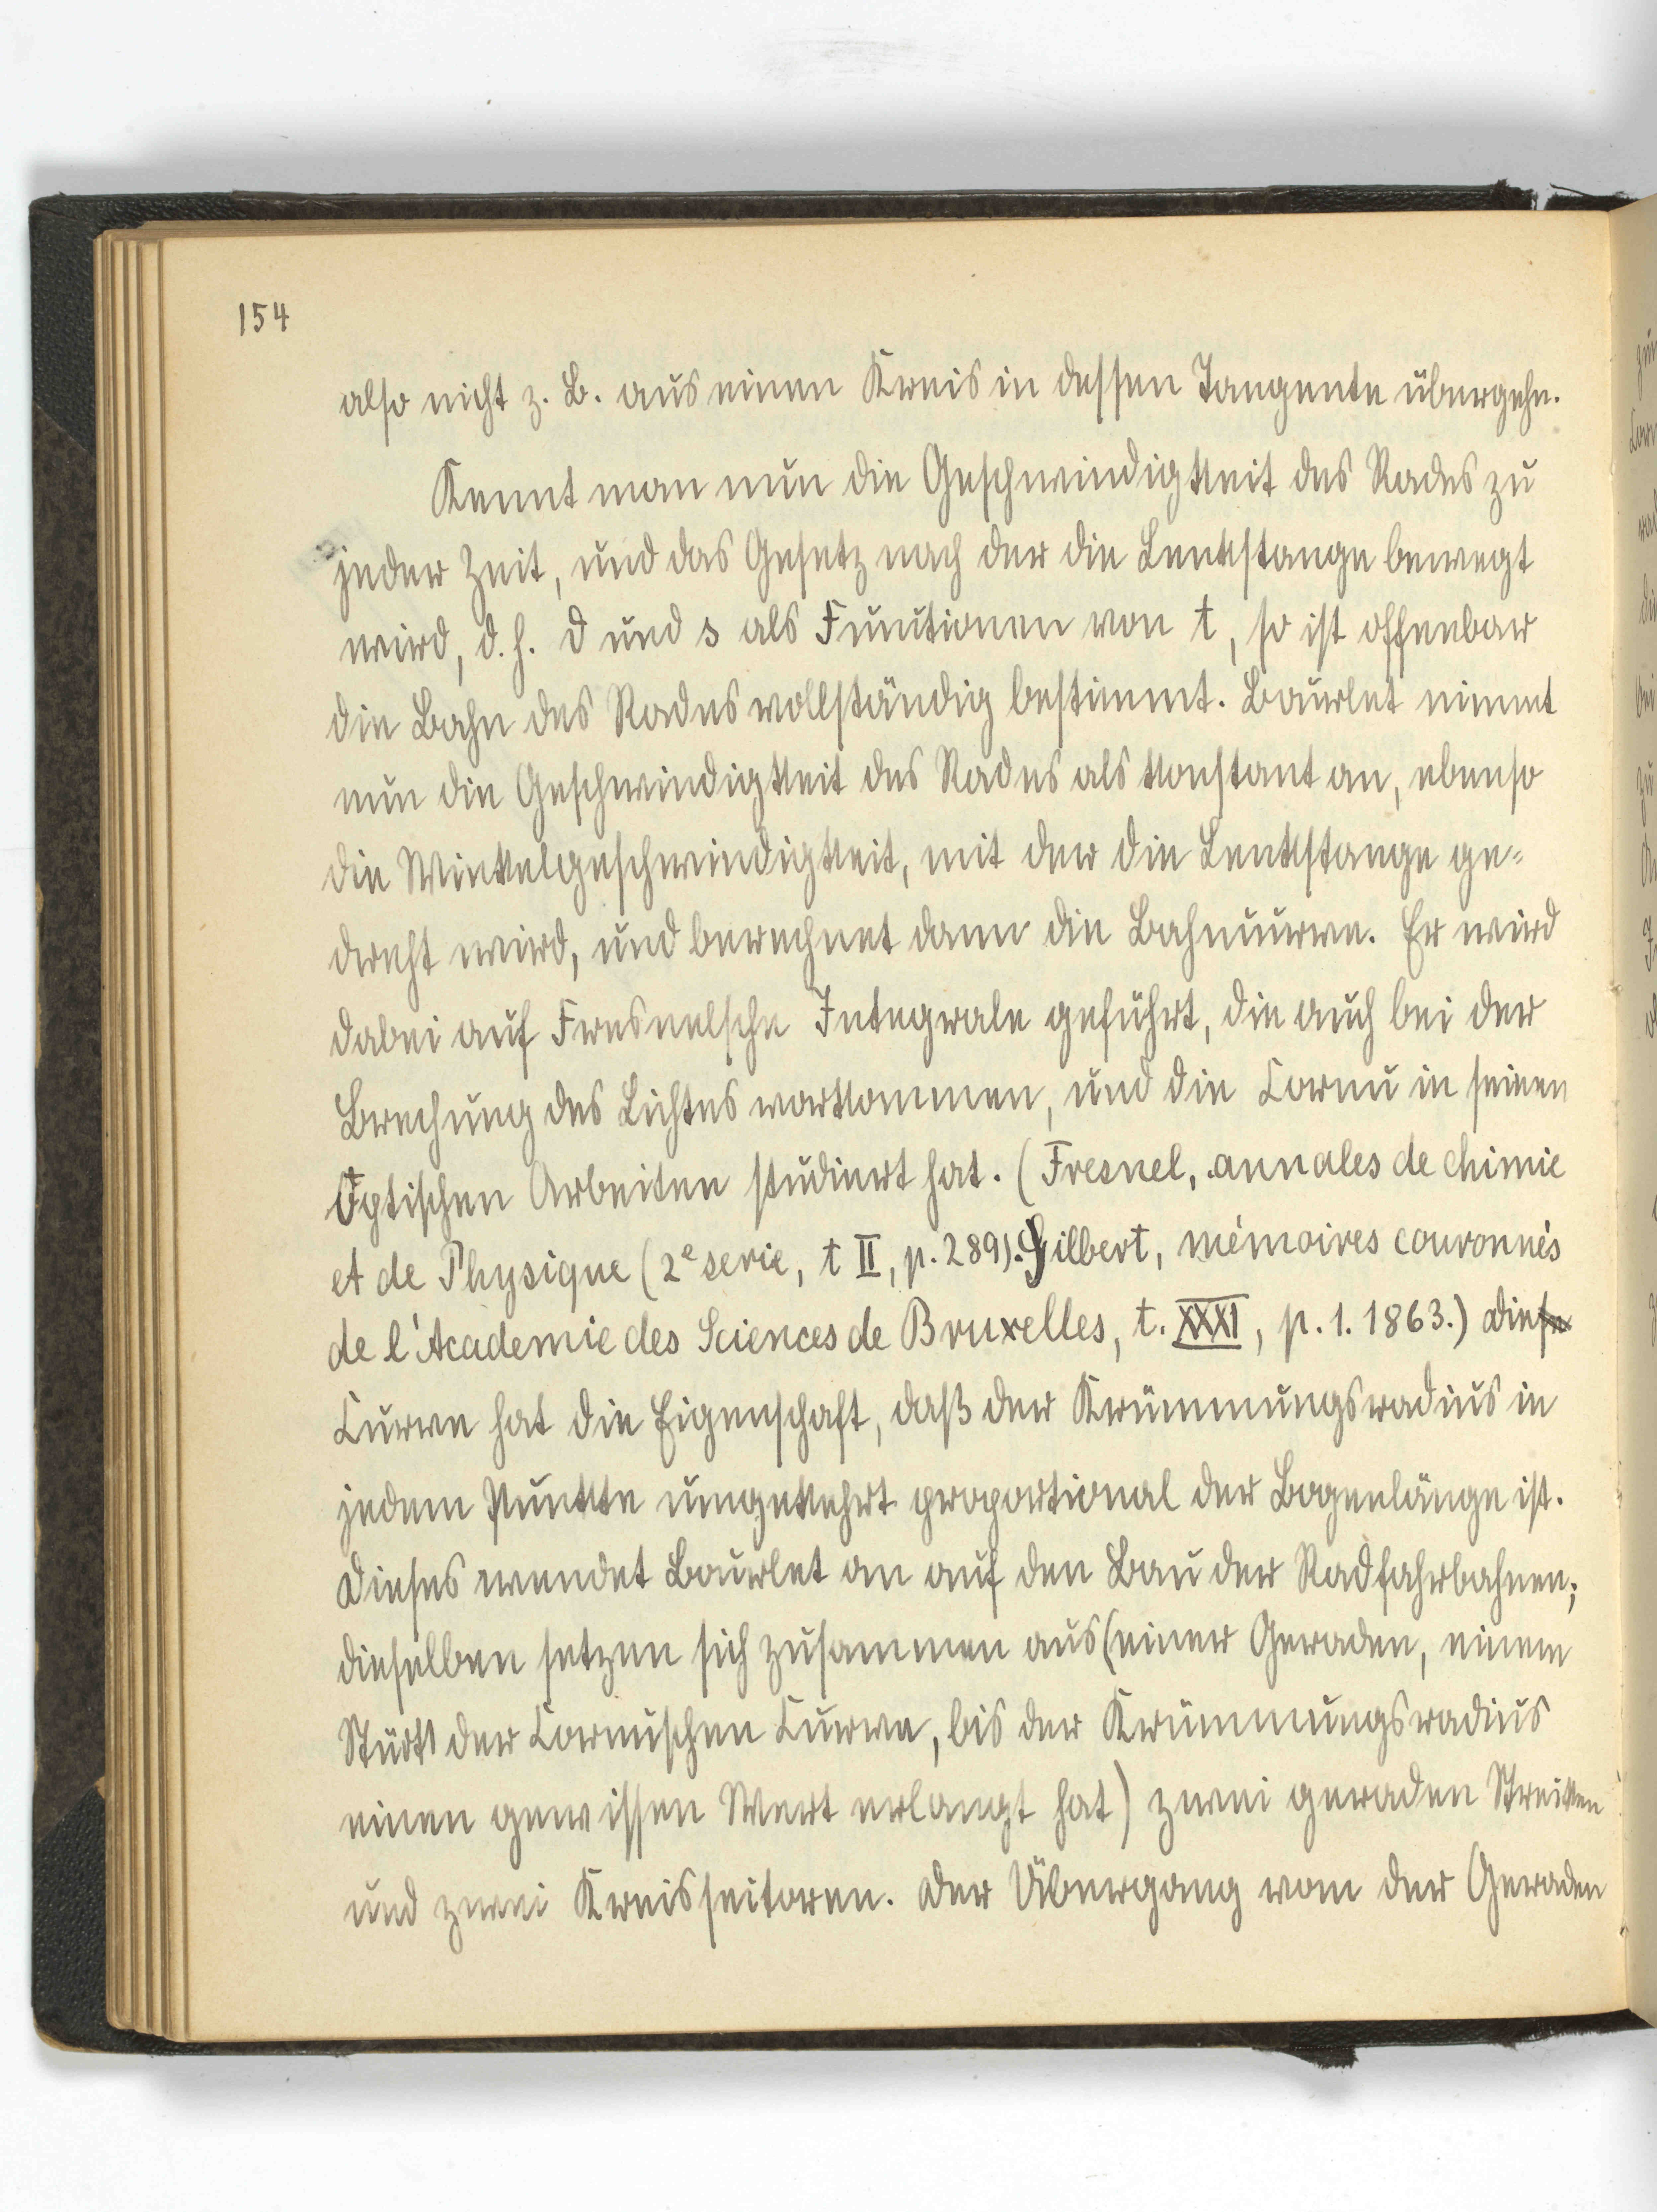 154
also nicht z. B. aus einen Kreis in dessen Tangente übergehn.
Kennt man nun die Geschwindigkeit des Rades zu
jeder Zeit, und das Gesetz nach der die Lenkstange bewegt
wird, d. h. d und s als Functionen von t, so ist offenbar
die Bahn des Rades vollständig bestimmt. Bourlet nimmt
nun die Geschwindigkeit des Rades als konstant an, ebenso
die Winkelgeschwindigkeit, mit der die Lenkstange ge-
dreht wird, und berechnet dann die Bahncurve. Er wird
dabei auf Fresnelsche Integrale geführt, die auch bei der
Brechung des Lichtes vorkommen, und die Cornu in seinen
Optischen Arbeiten studiert hat. (Fresnel, annales de chimie
et de Physique (2e serie, t II, p. 289). Gilbert, mémoires couronnés
de l'Academie des Sciences de Bruxelles, t. XXXI, p. 1. 1863.) Die
Curve hat die Eigenschaft, daß der Krümmungsradius in
jedem Punkte umgekehrt proportional der Bogenlänge ist.
Dieses wendet Bourlet an auf den Bau der Radfahrbahnen;
dieselben setzen sich zusammen aus (einer Geraden, einem
Stück der Cornuschen Curve, bis der Krümmungsradius
einen gewissen Wert erlangt hat) zwei geraden Strecken
und zwei Kreissectoren. Der Übergang von der Geraden